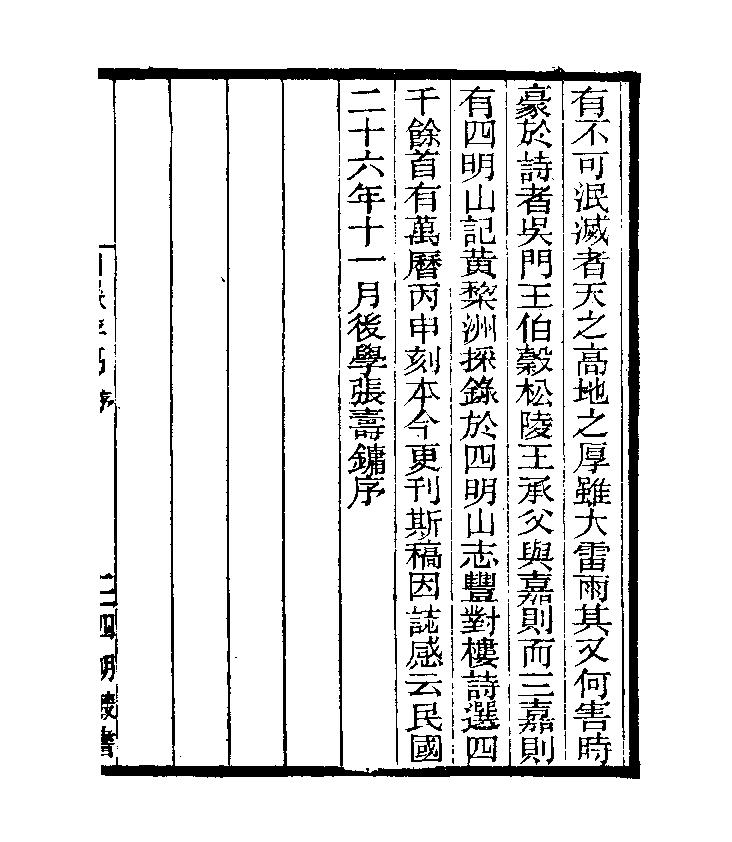 有不可泯滅者天之高地之厚雖大雷雨其又何害時
豪於詩者吳門王伯穀松陵王承父與嘉則而三嘉則
有四明山記黃棃洲採錄於四明山志豐對樓詩選四
千餘首有萬曆丙申刻本今更刊斯稿因誌感云民國
二十六年十一月後學張壽鏞序
序
二四明叢書